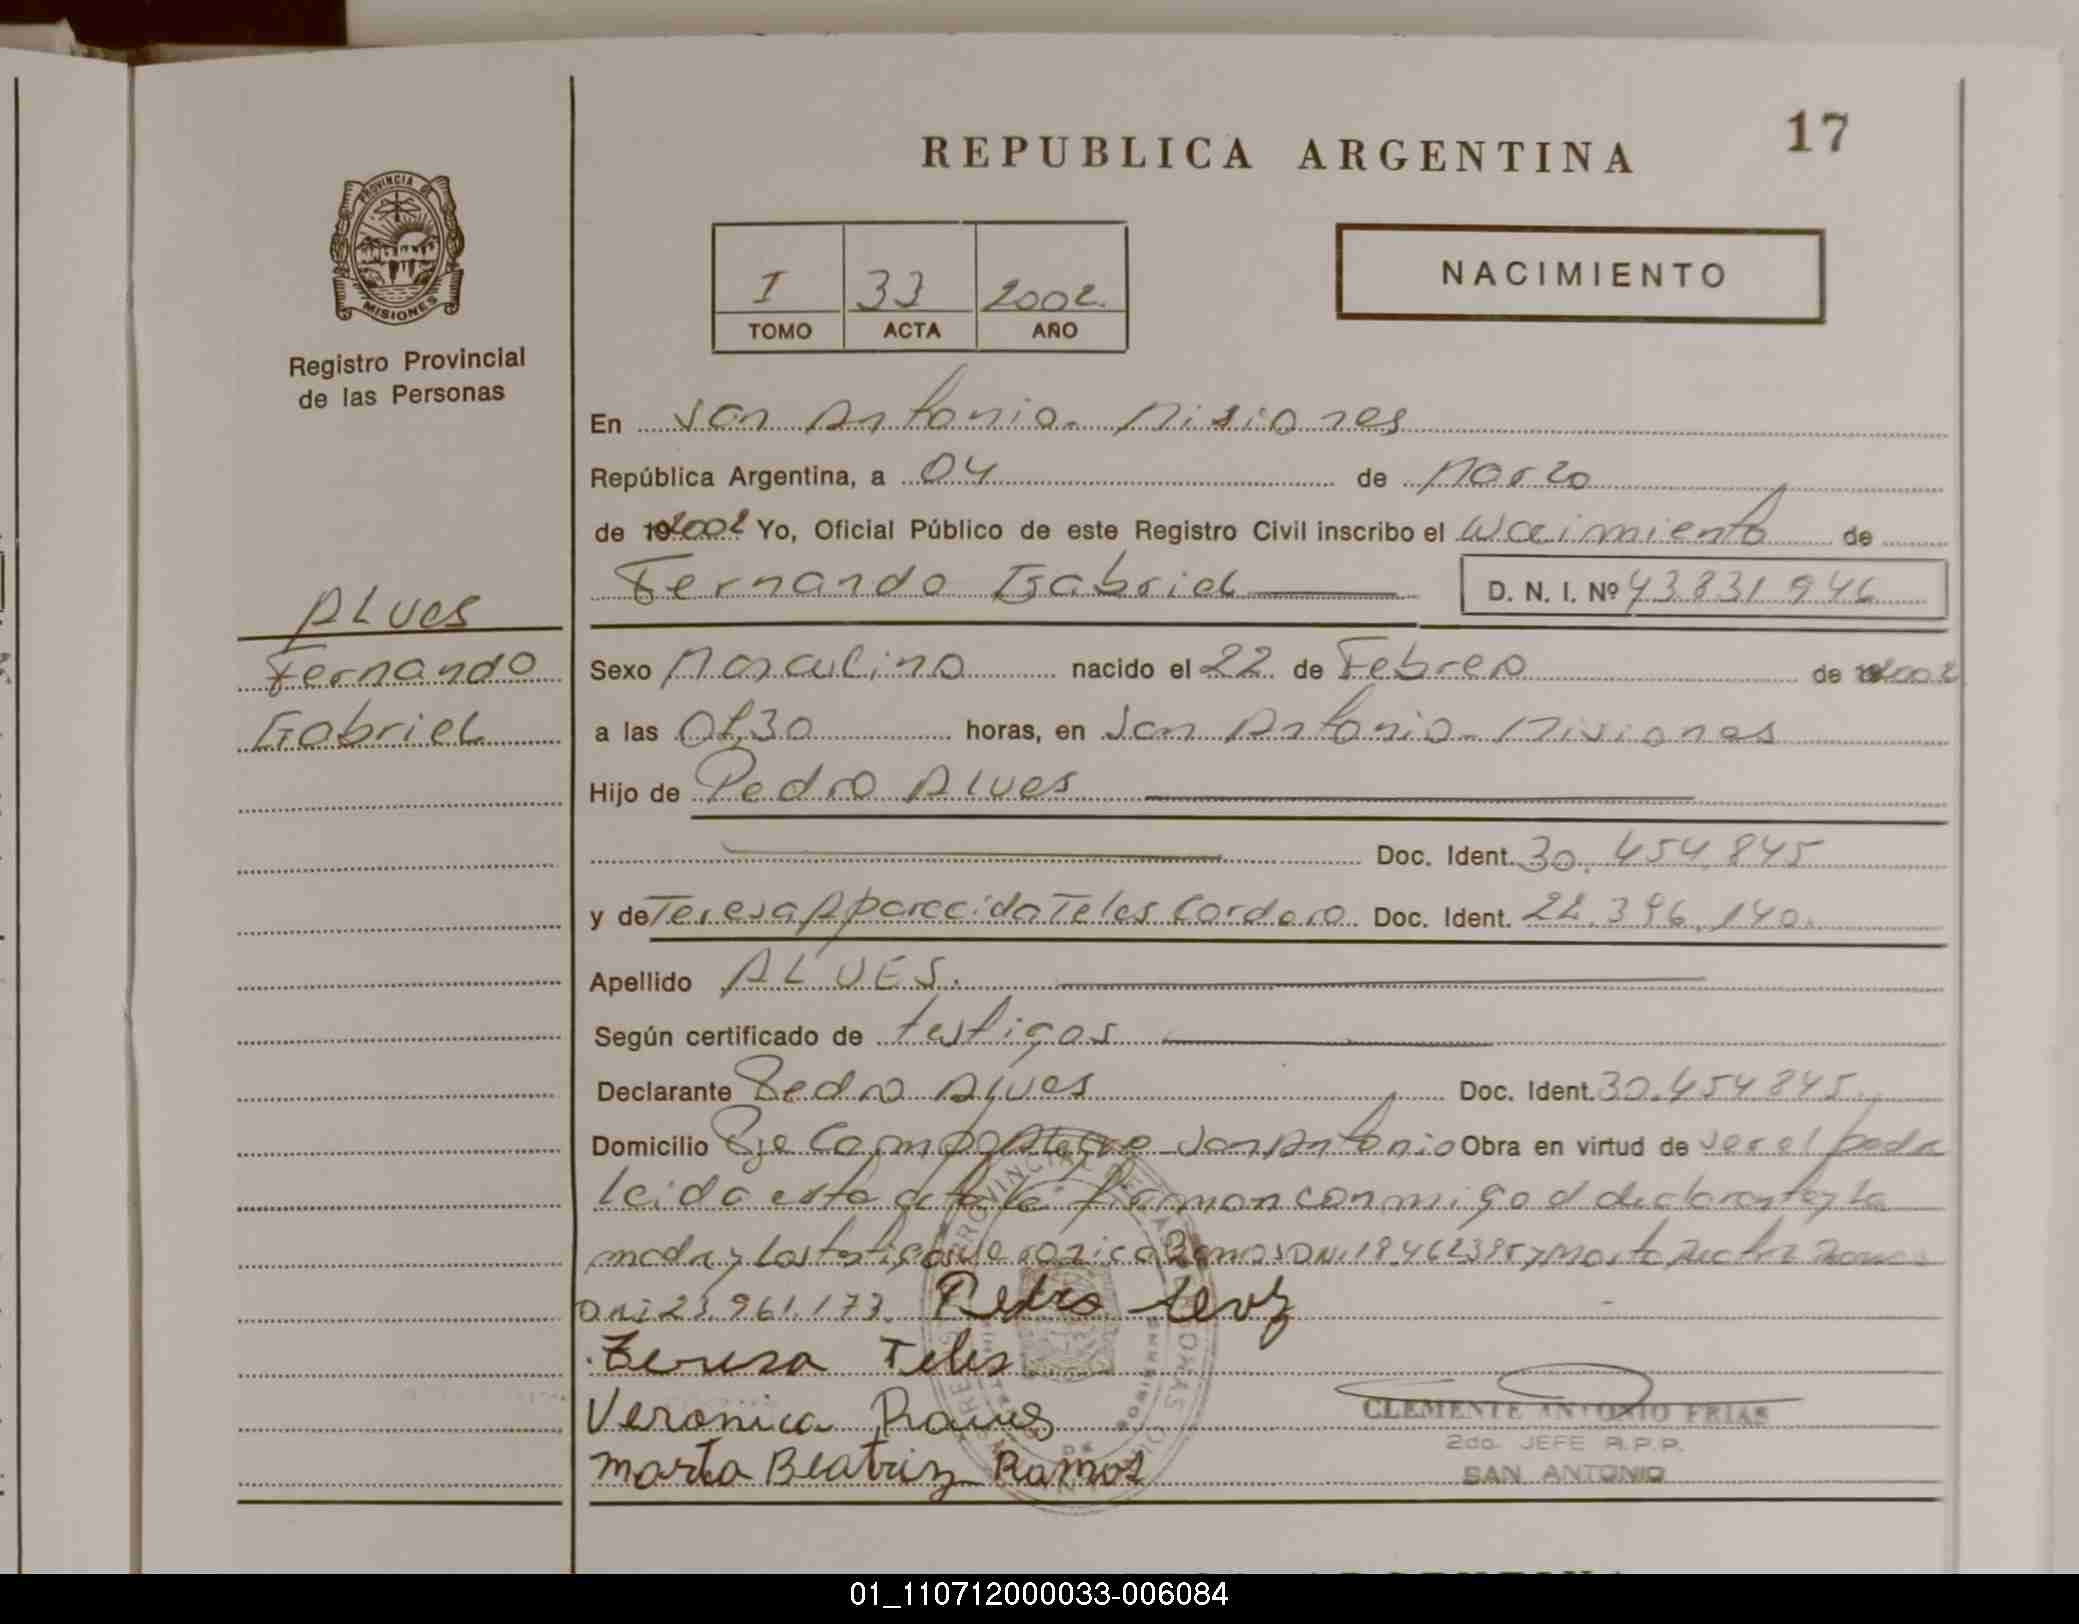 17
REPUBLICA ARGENTINA
PROVINCIA DE
MISIONES
Registro Provincial
de las Personas
NACIMIENTO
I 33 2002.
TOMO ACTA AÑO
En San Antonio. Misiones
República Argentina, a 04 de Marzo
de 19 2002 Yo, Oficial Público de este Registro Civil inscribo el Nacimiento de
Fernando Gabriel D. N. I. Nº 43831946
ALVES
Fernando
Gabriel
Sexo Masculino nacido el 22 de Febrero de 2002
a las 01,30 horas, en San Antonio - Misiones
Hijo de Pedro Alves
Doc. Ident. 30.454.845
y de Teresa Apparecida Teles Cordero Doc. Ident. 22.396.140.
Apellido ALVES.
Según certificado de testigos
Declarante Pedro Alves Doc. Ident. 30.454845.
Domicilio Pje Campo Alegre - San Antonio Obra en virtud de ser el padre
leida esta acta la firman conmigo el declarante y la
madre y los testigos Veronica Ramos DNI 18.462395 y Marta Beatriz Ramos
DNI 23.961.173. Pedro
Teresa Teles
Veronica Ramos
Marta Beatriz Ramos
CLEMENTE ANTONIO FRIAS
2do. JEFE R.P.P.
SAN ANTONIO
01_110712000033-006084